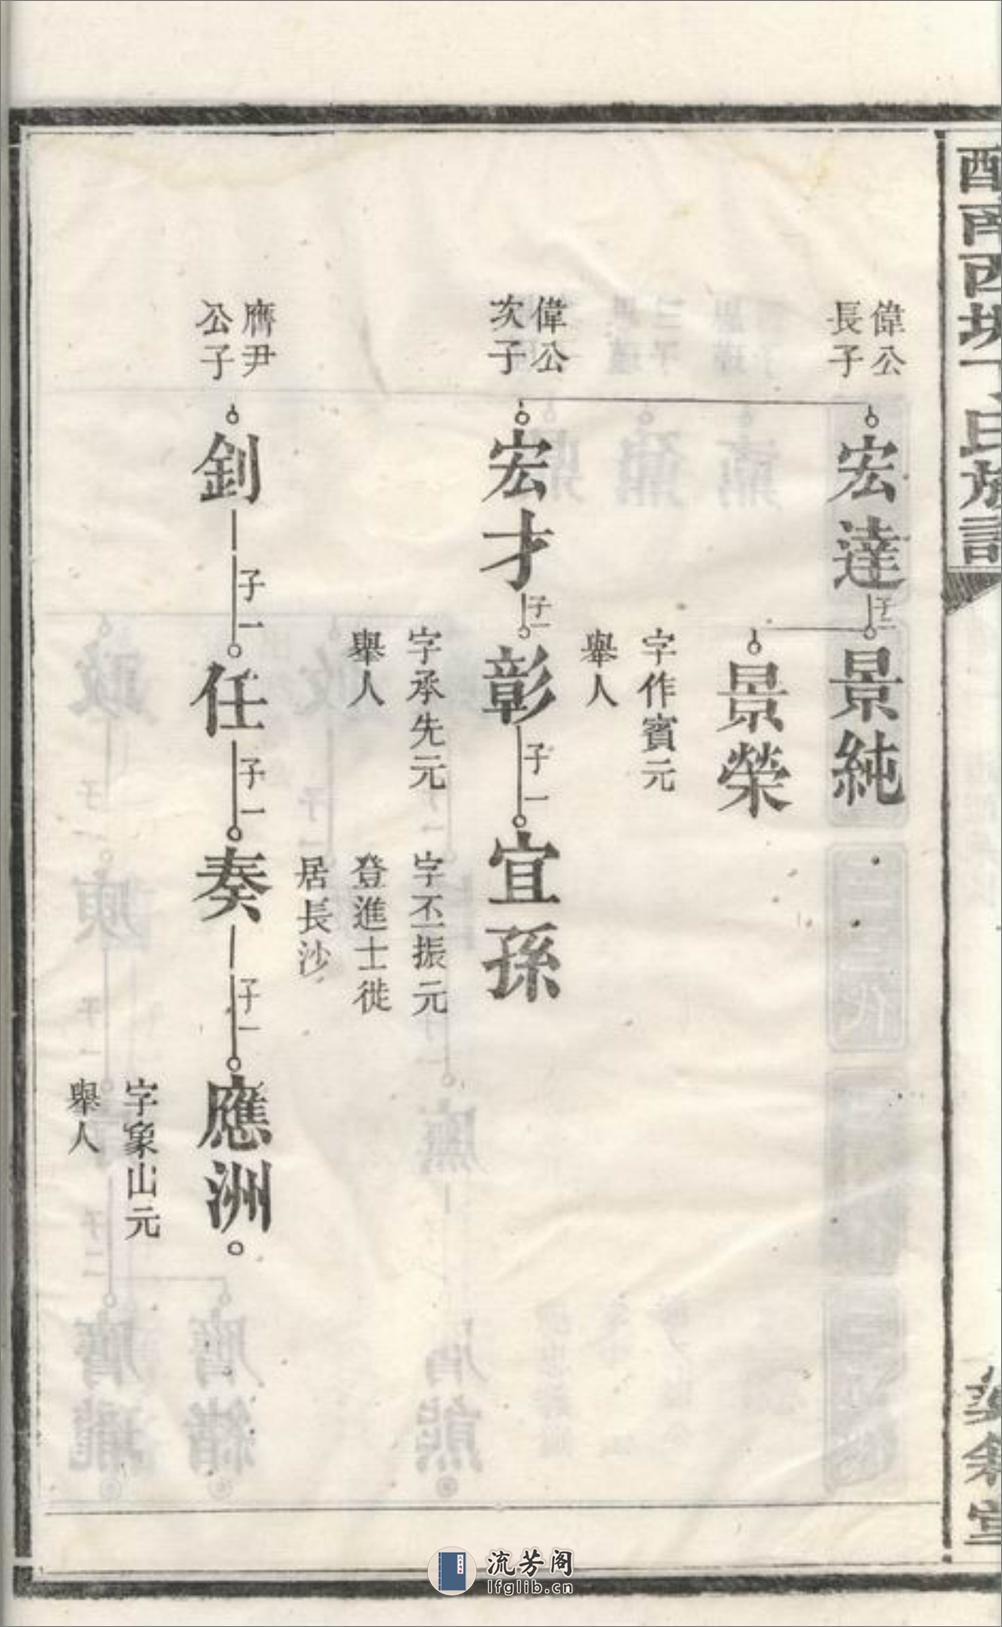 偉公
長子
宏達
子二
景純
景榮
偉公
次子
宏才
子一
彰
字作賓元
舉人
子一
宜孫
字承先元
舉人
字丕振元
登進士徙
居長沙
膺尹
公子
釗
子一
任
子一
奏
子一
應洲
字象山元
舉人
流芳阁
lfglib.cn